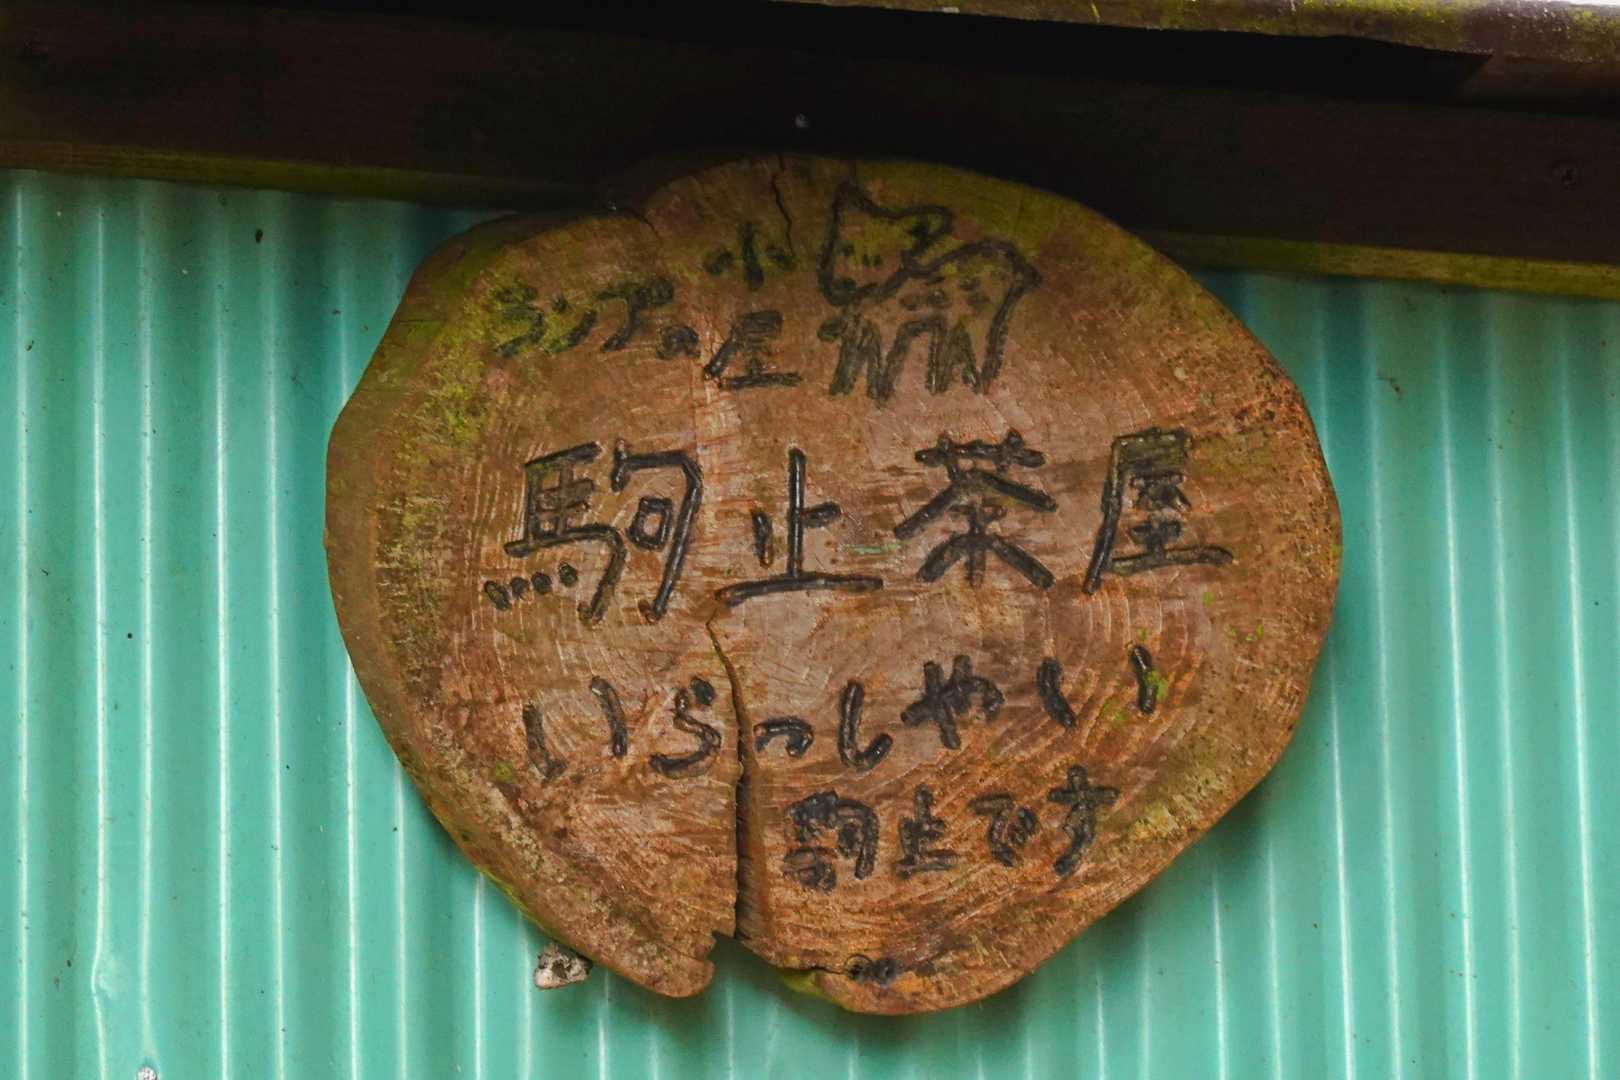 シンプルの小屋
駒止茶屋
いらっしゃい
駒止です